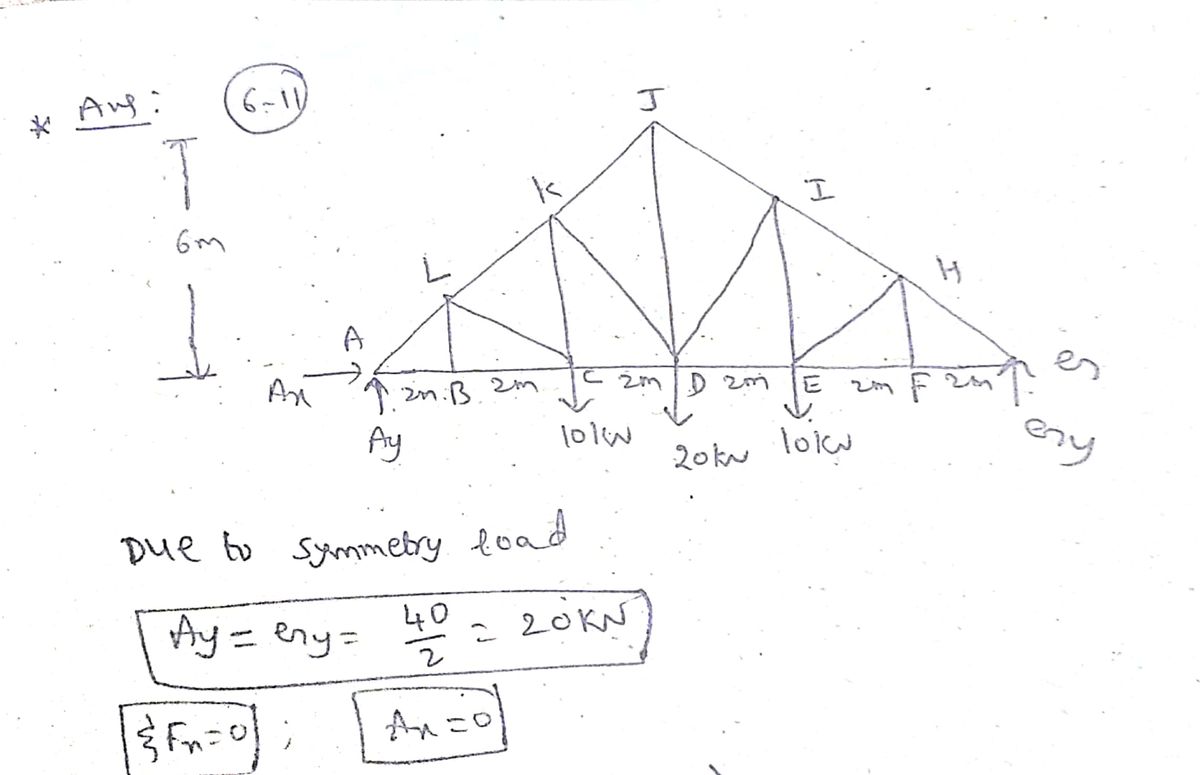 * Ans: 6-11
J
K
I
6m
L
H
A
Ax
2m B 2m C 2m D 2m E 2m F 2m G
Ay
10KN
20KN
10KN
Gy
Due to symmetry load
Ay = Gy = 40/2 = 20KN
ΣFx=0 ; Ax=0